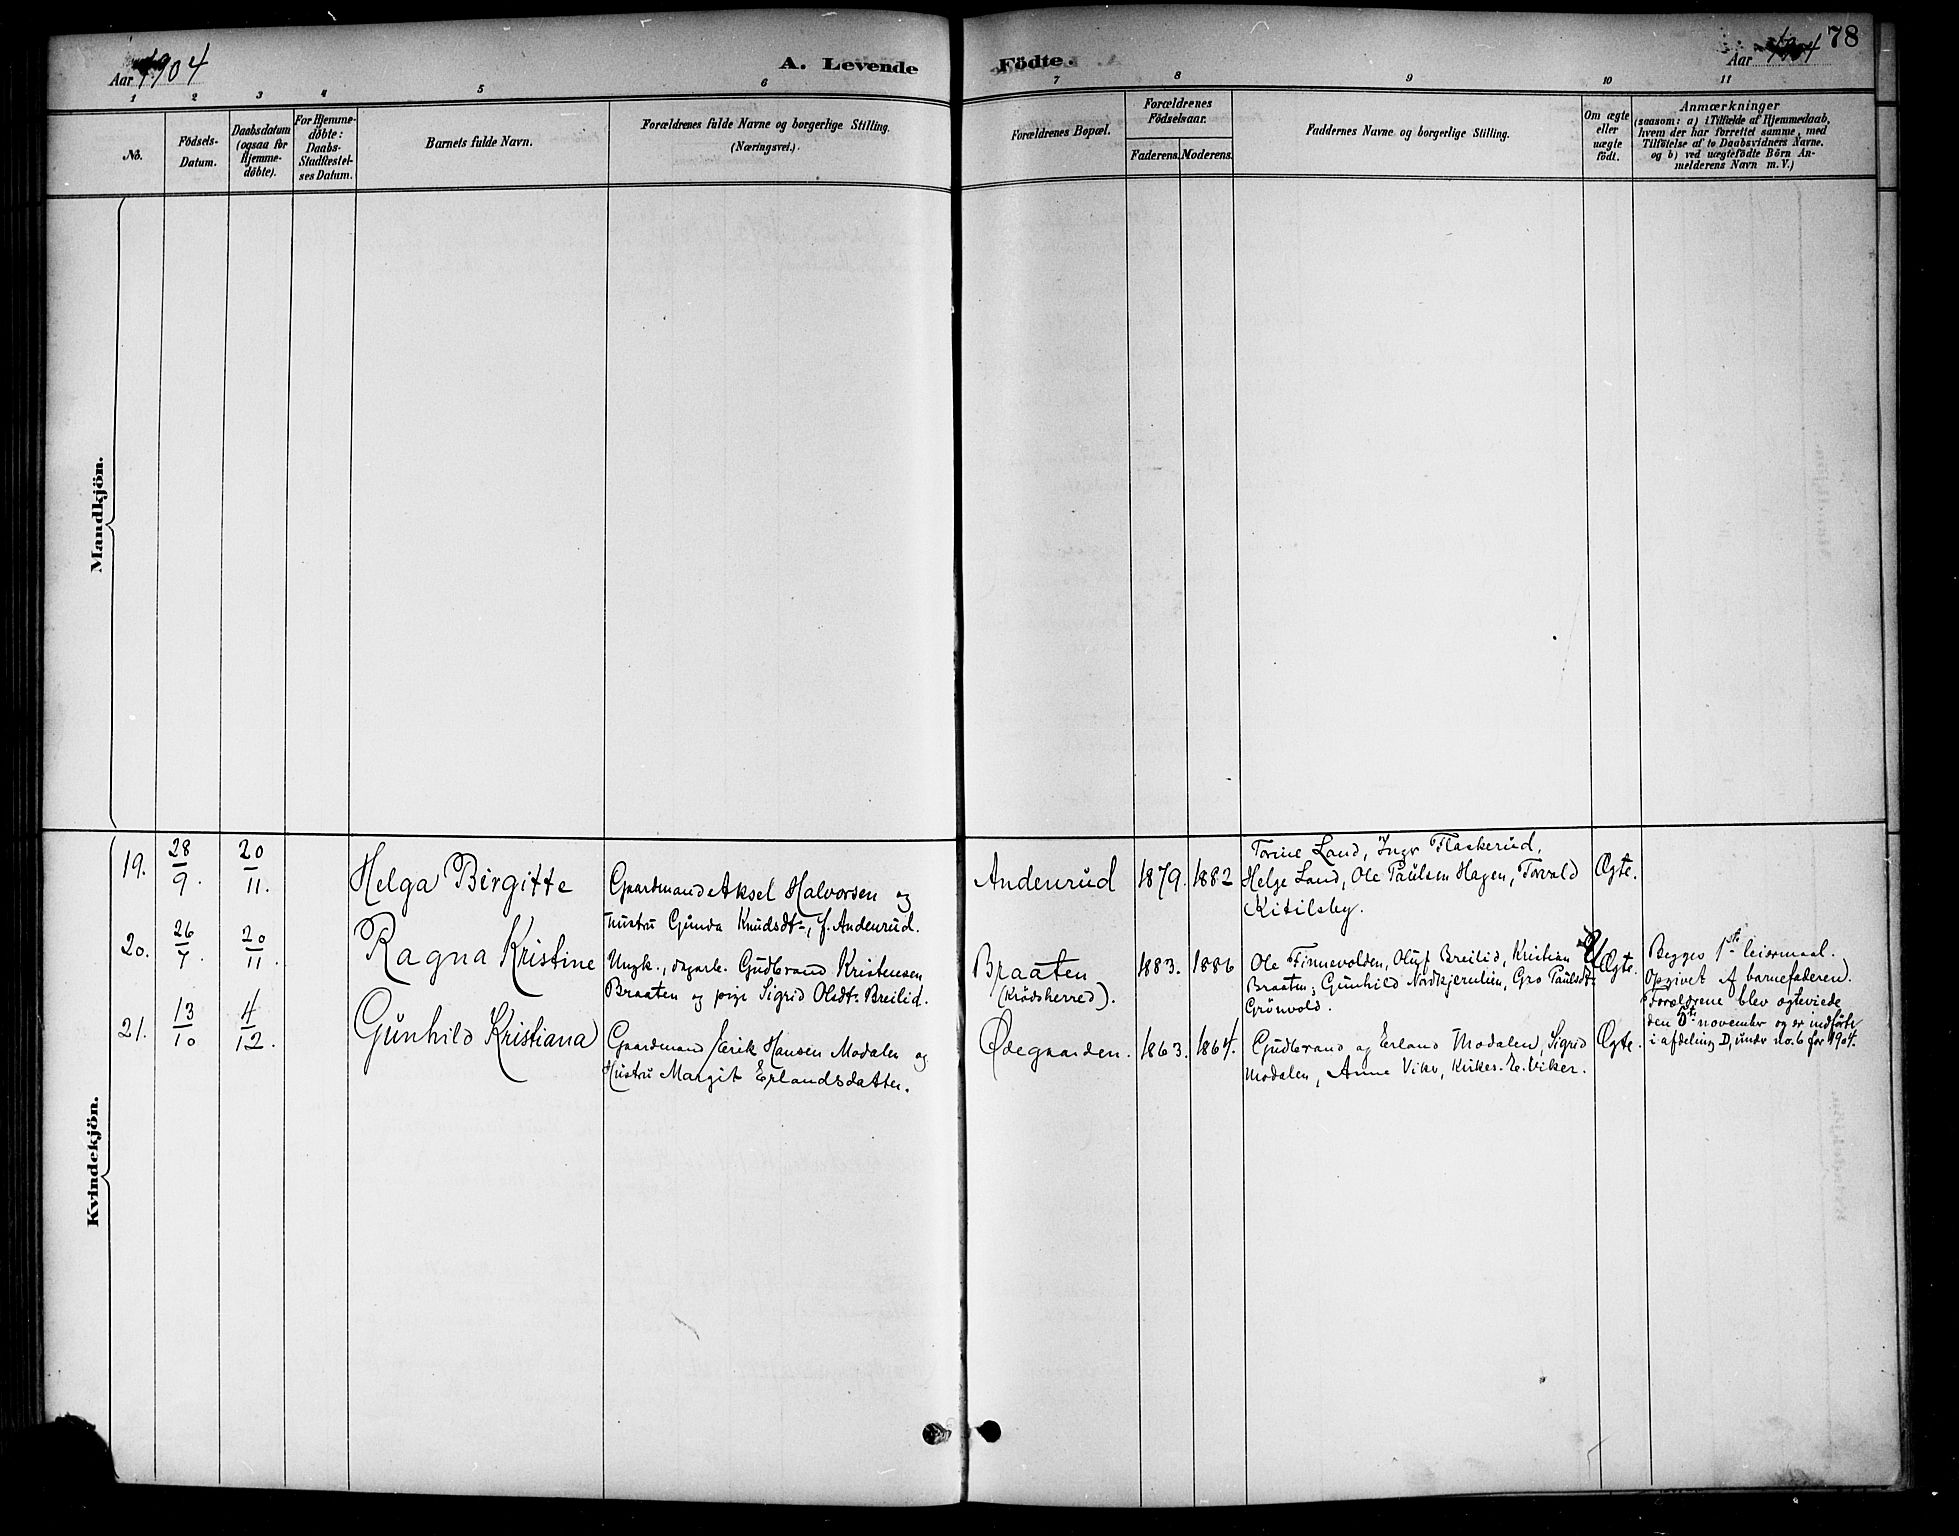 Aar 1904
A. Levende Födte.
Aar 1904
78
1 2 3 4 5 6 7 8 9 10 11
No.
Födsels-
Datum.
Daabsdatum
(ogsaa for
Hjemme-
döbte).
For Hjemme-
döbte:
Daabs-
Stadfæstel-
ses Datum.
Barnets fulde Navn.
Forældrenes fulde Navne og borgerlige Stilling.
(Næringsvei.)
Forældrenes Bopæl.
Forældrenes
Födselsaar.
Faderens. Moderens.
Faddernes Navne og borgerlige Stilling.
Om ægte
eller
uægte
födt.
Anmærkninger
(saasom: a) i Tilfælde af Hjemmedaab,
hvem der har forrettet samme, med
Tilföielse af to Daabsvidners Navne.
og b) ved uægtefödte Börn An-
melderens Navn m. V.)
Mandkjön.
Kvindekjön.
19. 28/9. 20/11. Helga Birgitte
Gaardmand Aksel Halvorsen og
hustru Gunda Knudsdt., f. Andenrud.
Andenrud 1879. 1882
Torine Land, Ingr Flaskerud,
Helge Land, Ole Paulsen Hagen, Torvald
Kitilsby.
Ægte.
20. 26/7. 20/11. Ragna Kristine
Ungk., dagarb. Gudbrand Kristensen
Braaten og pige Sigrid Olsdt. Breilid.
Braaten
(Krödsherred).
1883. 1886
Ole Finnevolden, Oluf Breilid, Kristian
Braaten; Gunhild Nordkjernlien, Gro Paulsdt.
Grönvold.
Uægte.
Begges 1ste leiermaal.
Opgivet af barnefaderen.
Forældrene blev ægteviede
den 5te november og er indförte
i afdeling D, under no. 6 for 1904.
21. 13/10 4/12. Gunhild Kristiana
Gaardmand Erik Hansen Modalen og
Hustru Margit Erlandsdatter.
Ödegaarden. 1863. 1864.
Gudbrand og Erland Modalen, Sigrid
Modalen, Anne Vikr, Kirkes. E. Viker.
Ægte.